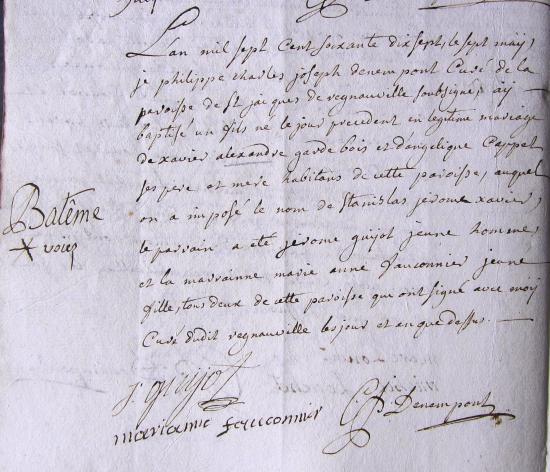 L'an mil sept Cent soixante dix sept, le sept maij,
je philippe charles joseph denempont Curé de la
paroisse de St jacques de regnauville soubsigné, aij
baptisé un fils né le jour precedent en legitime mariage
de xavier alexandre garde bois et d'angelique Cappet
ses pere et mere habitans de cette paroisse, auquel
on a imposé le nom de Stanislas jerome xavier,
le parrain a eté jerome guijot jeune homme,
et la marrainne marie anne fauconnier jeune
fille, tous deux de cette paroisse qui ont signé avec moij
Curé dudit regnauville les jour et an que dessus.
Batême
J. guijot
marianne fauconnier
Denempont